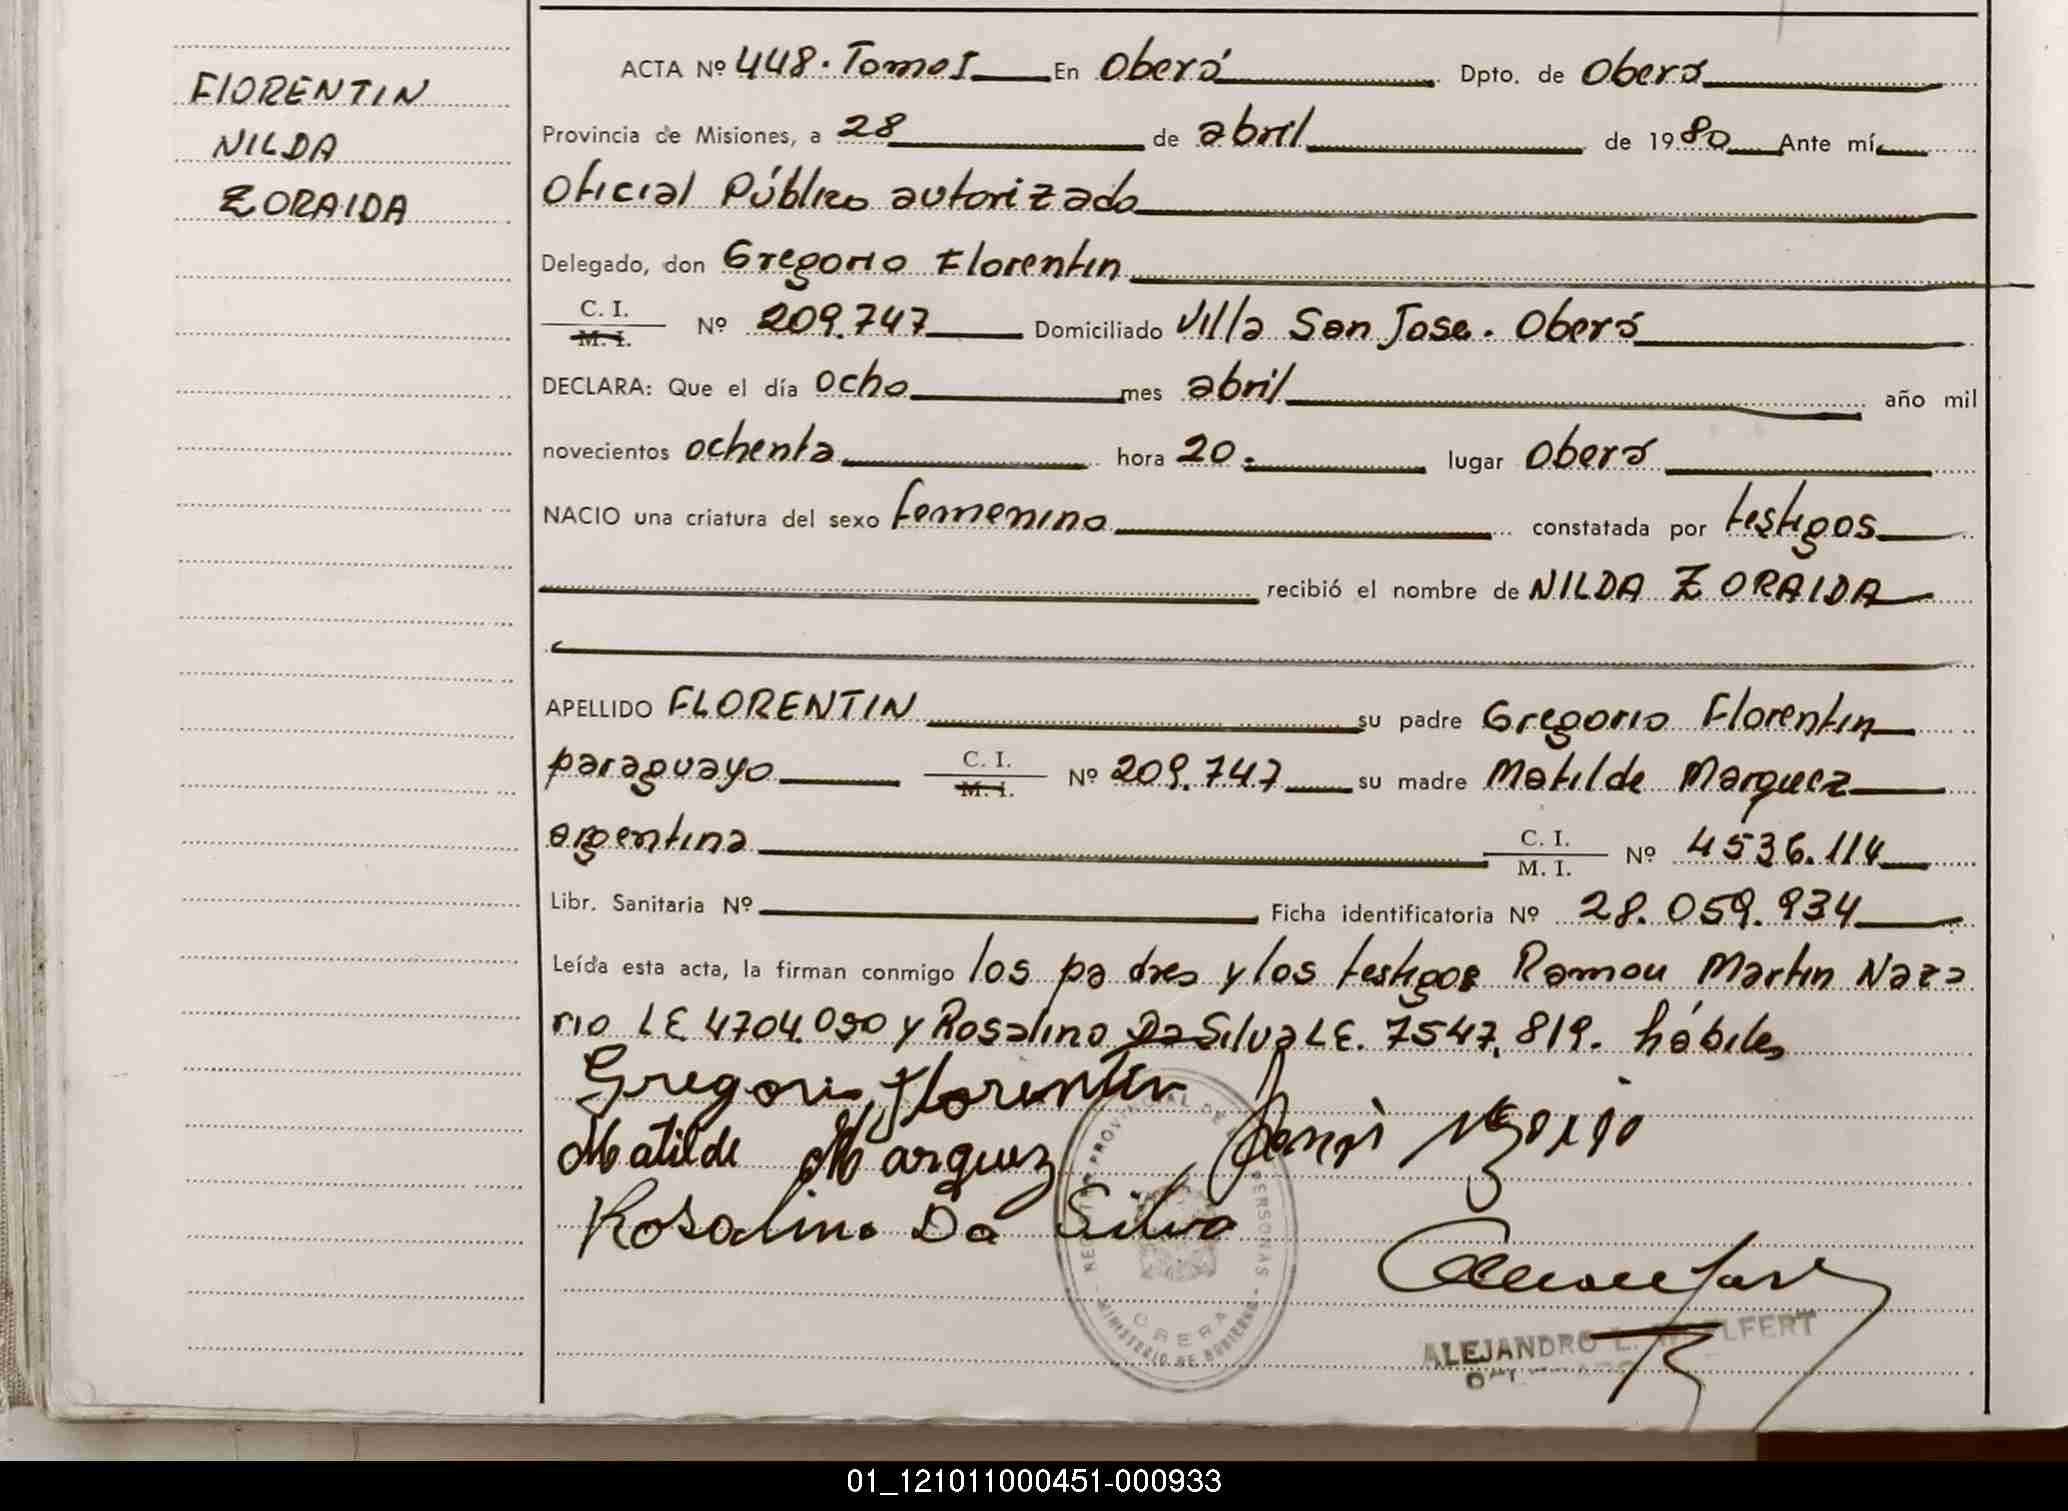 FLORENTIN
NILDA
ZORAIDA
ACTA Nº 448. Tomo I En Oberá Dpto. de Oberá
Provincia de Misiones, a 28 de abril de 1980 Ante mí
Oficial Público autorizado
Delegado, don Gregorio Florentin
C. I.
M. I. Nº 209.747 Domiciliado Villa San Jose. Oberá
DECLARA: Que el día ocho mes abril año mil
novecientos ochenta hora 20. lugar Oberá
NACIO una criatura del sexo femenino constatada por testigos
recibió el nombre de NILDA ZORAIDA
APELLIDO FLORENTIN su padre Gregorio Florentin
paraguayo C. I. M. I. Nº 209.747 su madre Matilde Marquez
argentina C. I. M. I. Nº 4536.114
Libr. Sanitaria Nº Ficha identificatoria Nº 28.059.934
Leída esta acta, la firman conmigo los padres y los testigos Ramon Martin Naza
rio LE 4704.090 y Rosalino Da Silva LE. 7547.819. hábiles
Gregorio Florentin
Matilde Marquez
Rosalino Da Silva
PROVINCIAL DE PERSONAS
MINISTERIO DE GOBIERNO
ALEJANDRO L.
01_121011000451-000933